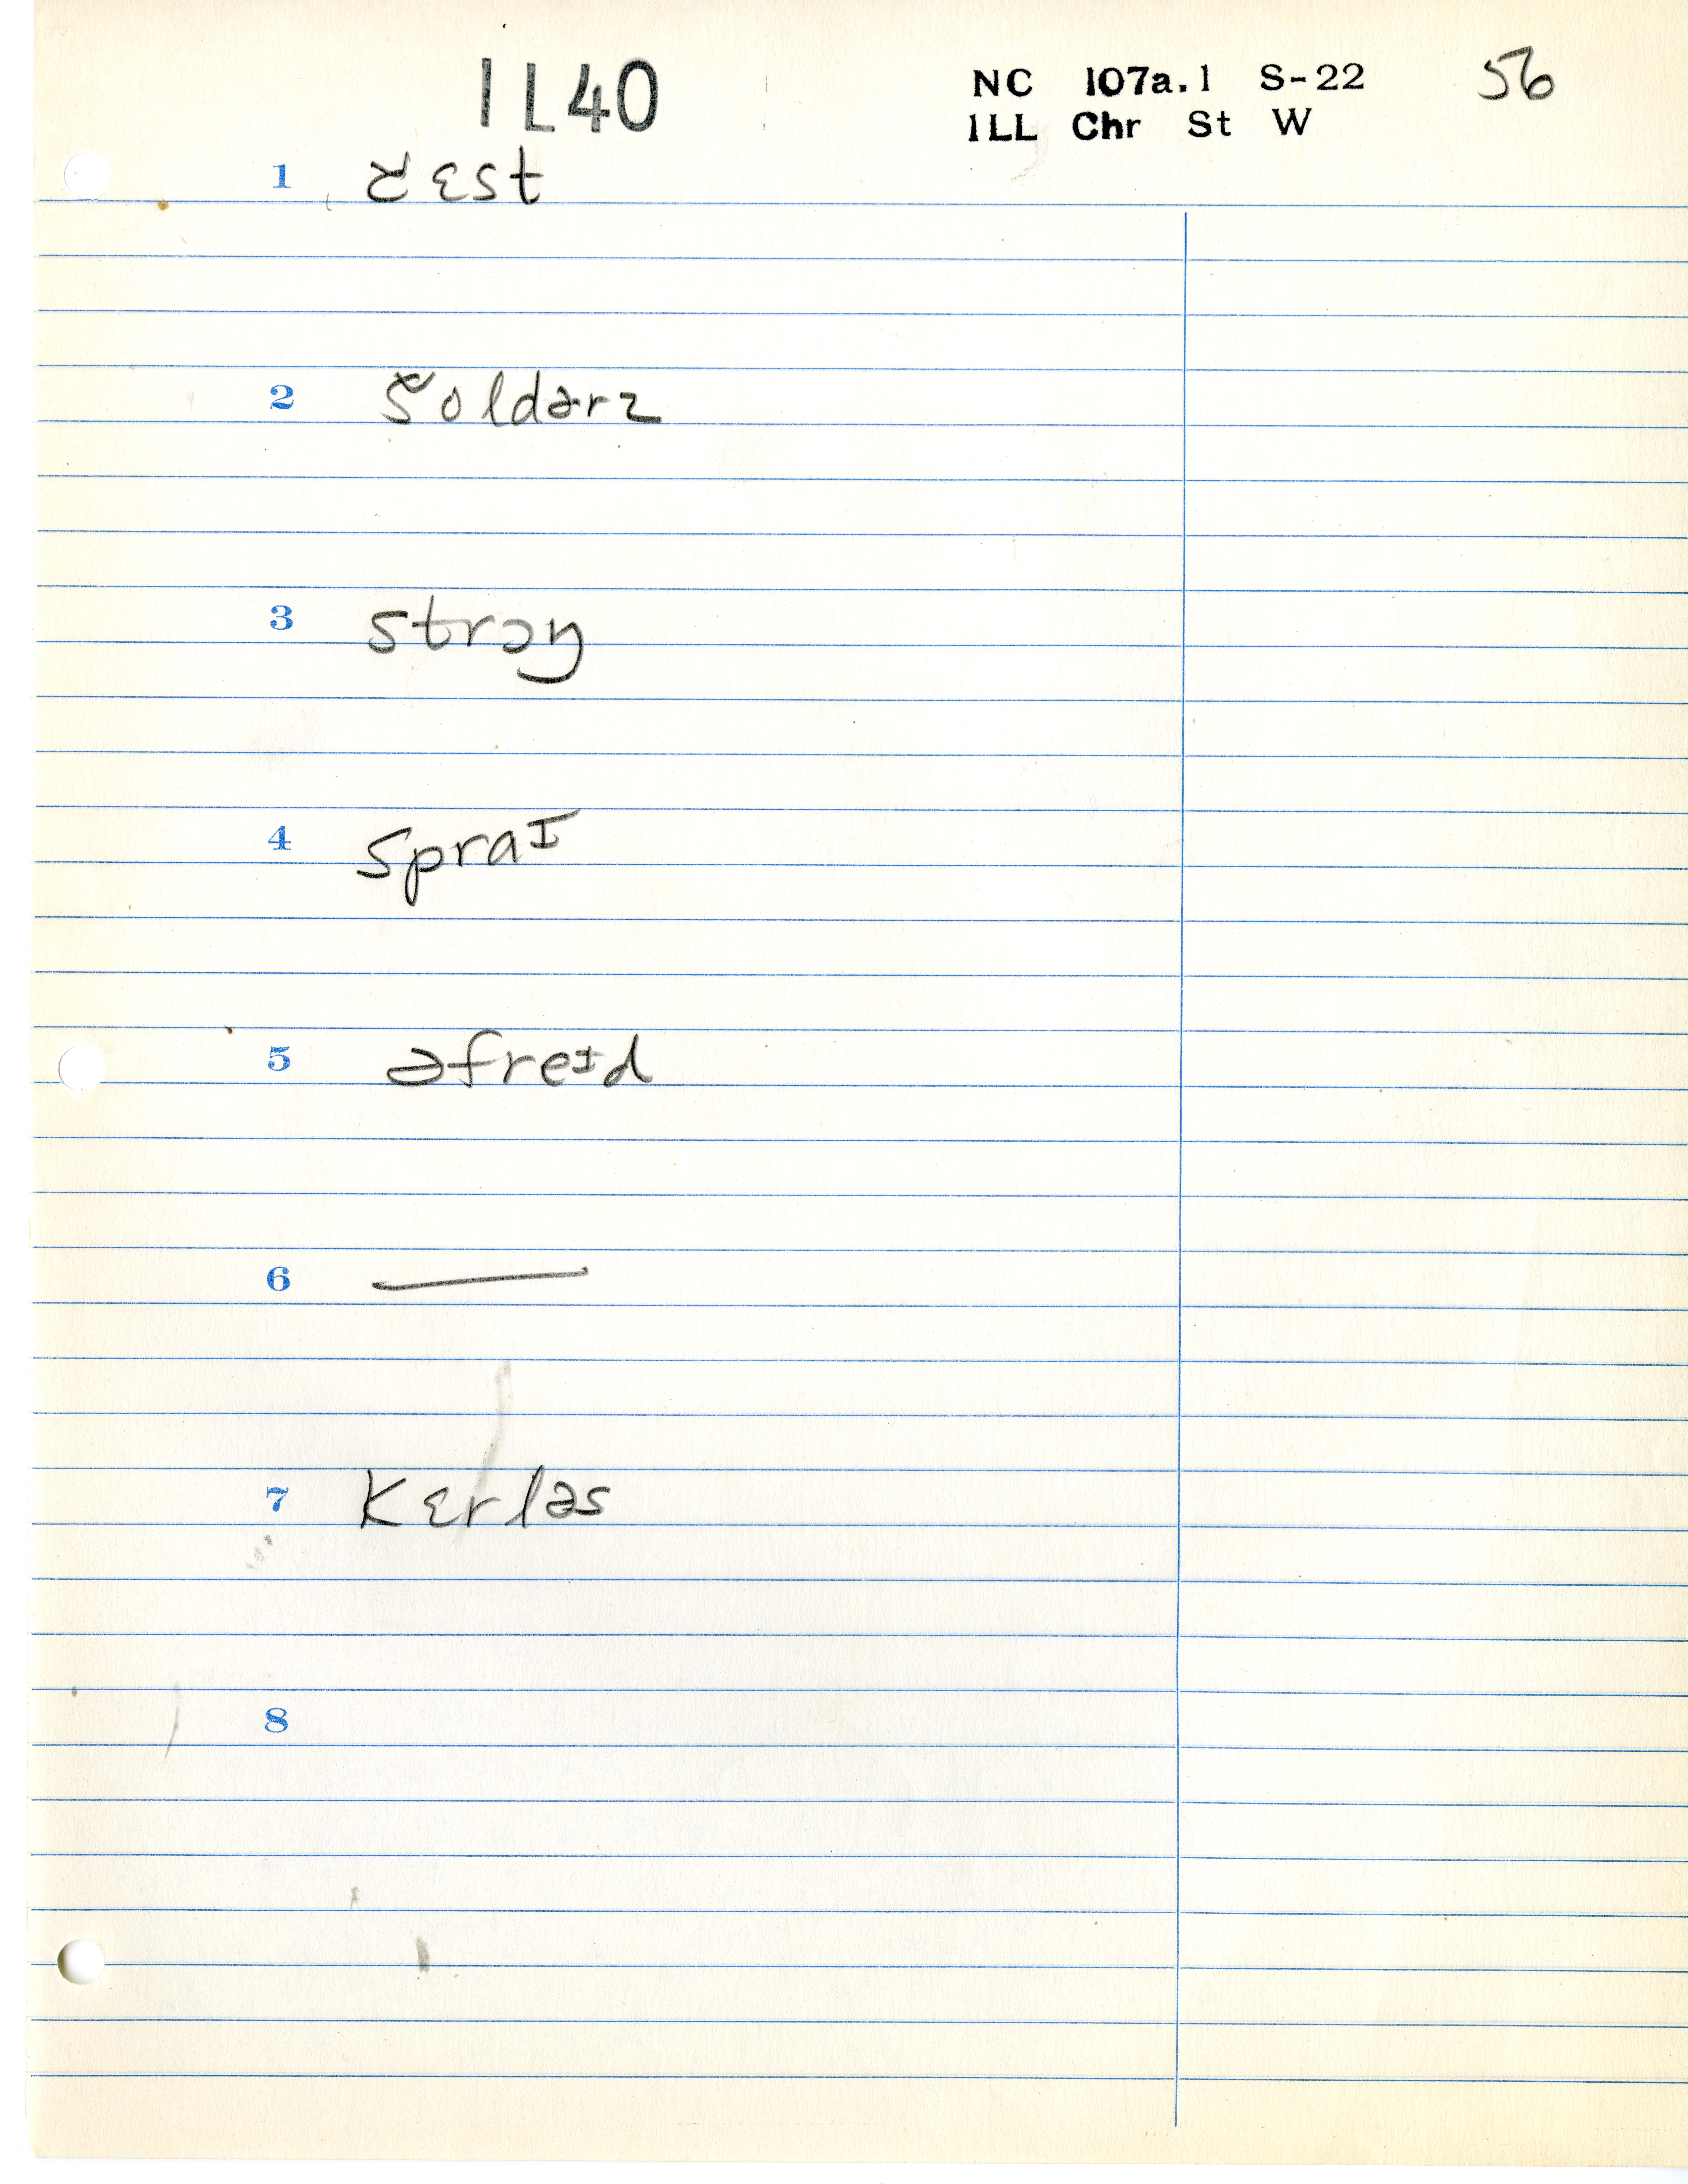 1L40
NC 107a.1 S-22 56
1LL Chr St W
1 ɛst
2 šoldərz
3 strɔŋ
4 spraɪ
5 əfreɪd
6 —
7 kɛrləs
8